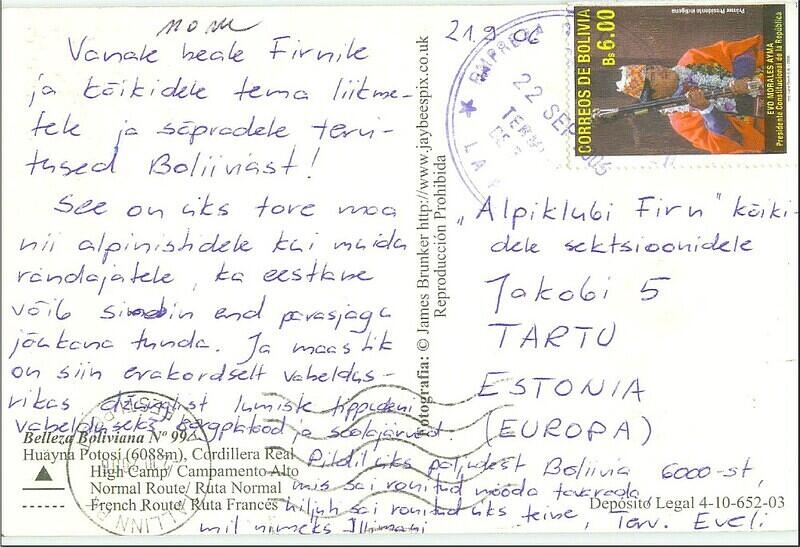 21.9.06
Vanale heale Firnile
ja kõikidele tema liikme-
tele ja sõpradele tervi-
tused Boliiviast!
See on üks tore maa
nii alpinistidele kui muidu
rändajatele, ka eestlane
võib siin end parasjagu
jõukana tunda. Ja maastik
on siin erakordselt vaheldus-
rikas džunglist lumiste tippudeni
vahelduseks kõrgplatood ja soolajärved.
Pildil üks paljudest Boliivia 6000-st,
mis sai ronitud mööda tavarada
hiljem sai ronitud üks teine,
mil nimeks Illimani
Terv. Eveli
Belleza Boliviana Nº 99
Huayna Potosi (6088m), Cordillera Real
High Camp/ Campamento Alto
Normal Route/ Ruta Normal
French Route/ Ruta Francés
Fotografia: © James Brunker http://www.jaybeespix.co.uk
Reproducción Prohibida
LA
22 SEP
TALLINN
CORREOS DE BOLIVIA
Bs 6.00
Primer Presidente Indígena
EVO MORALES AYMA
Presidente Constitucional de la República
„Alpiklubi Firn" kõiki-
dele sektsioonidele
Jakobi 5
TARTU
ESTONIA
(EUROPA)
Depósito Legal 4-10-652-03